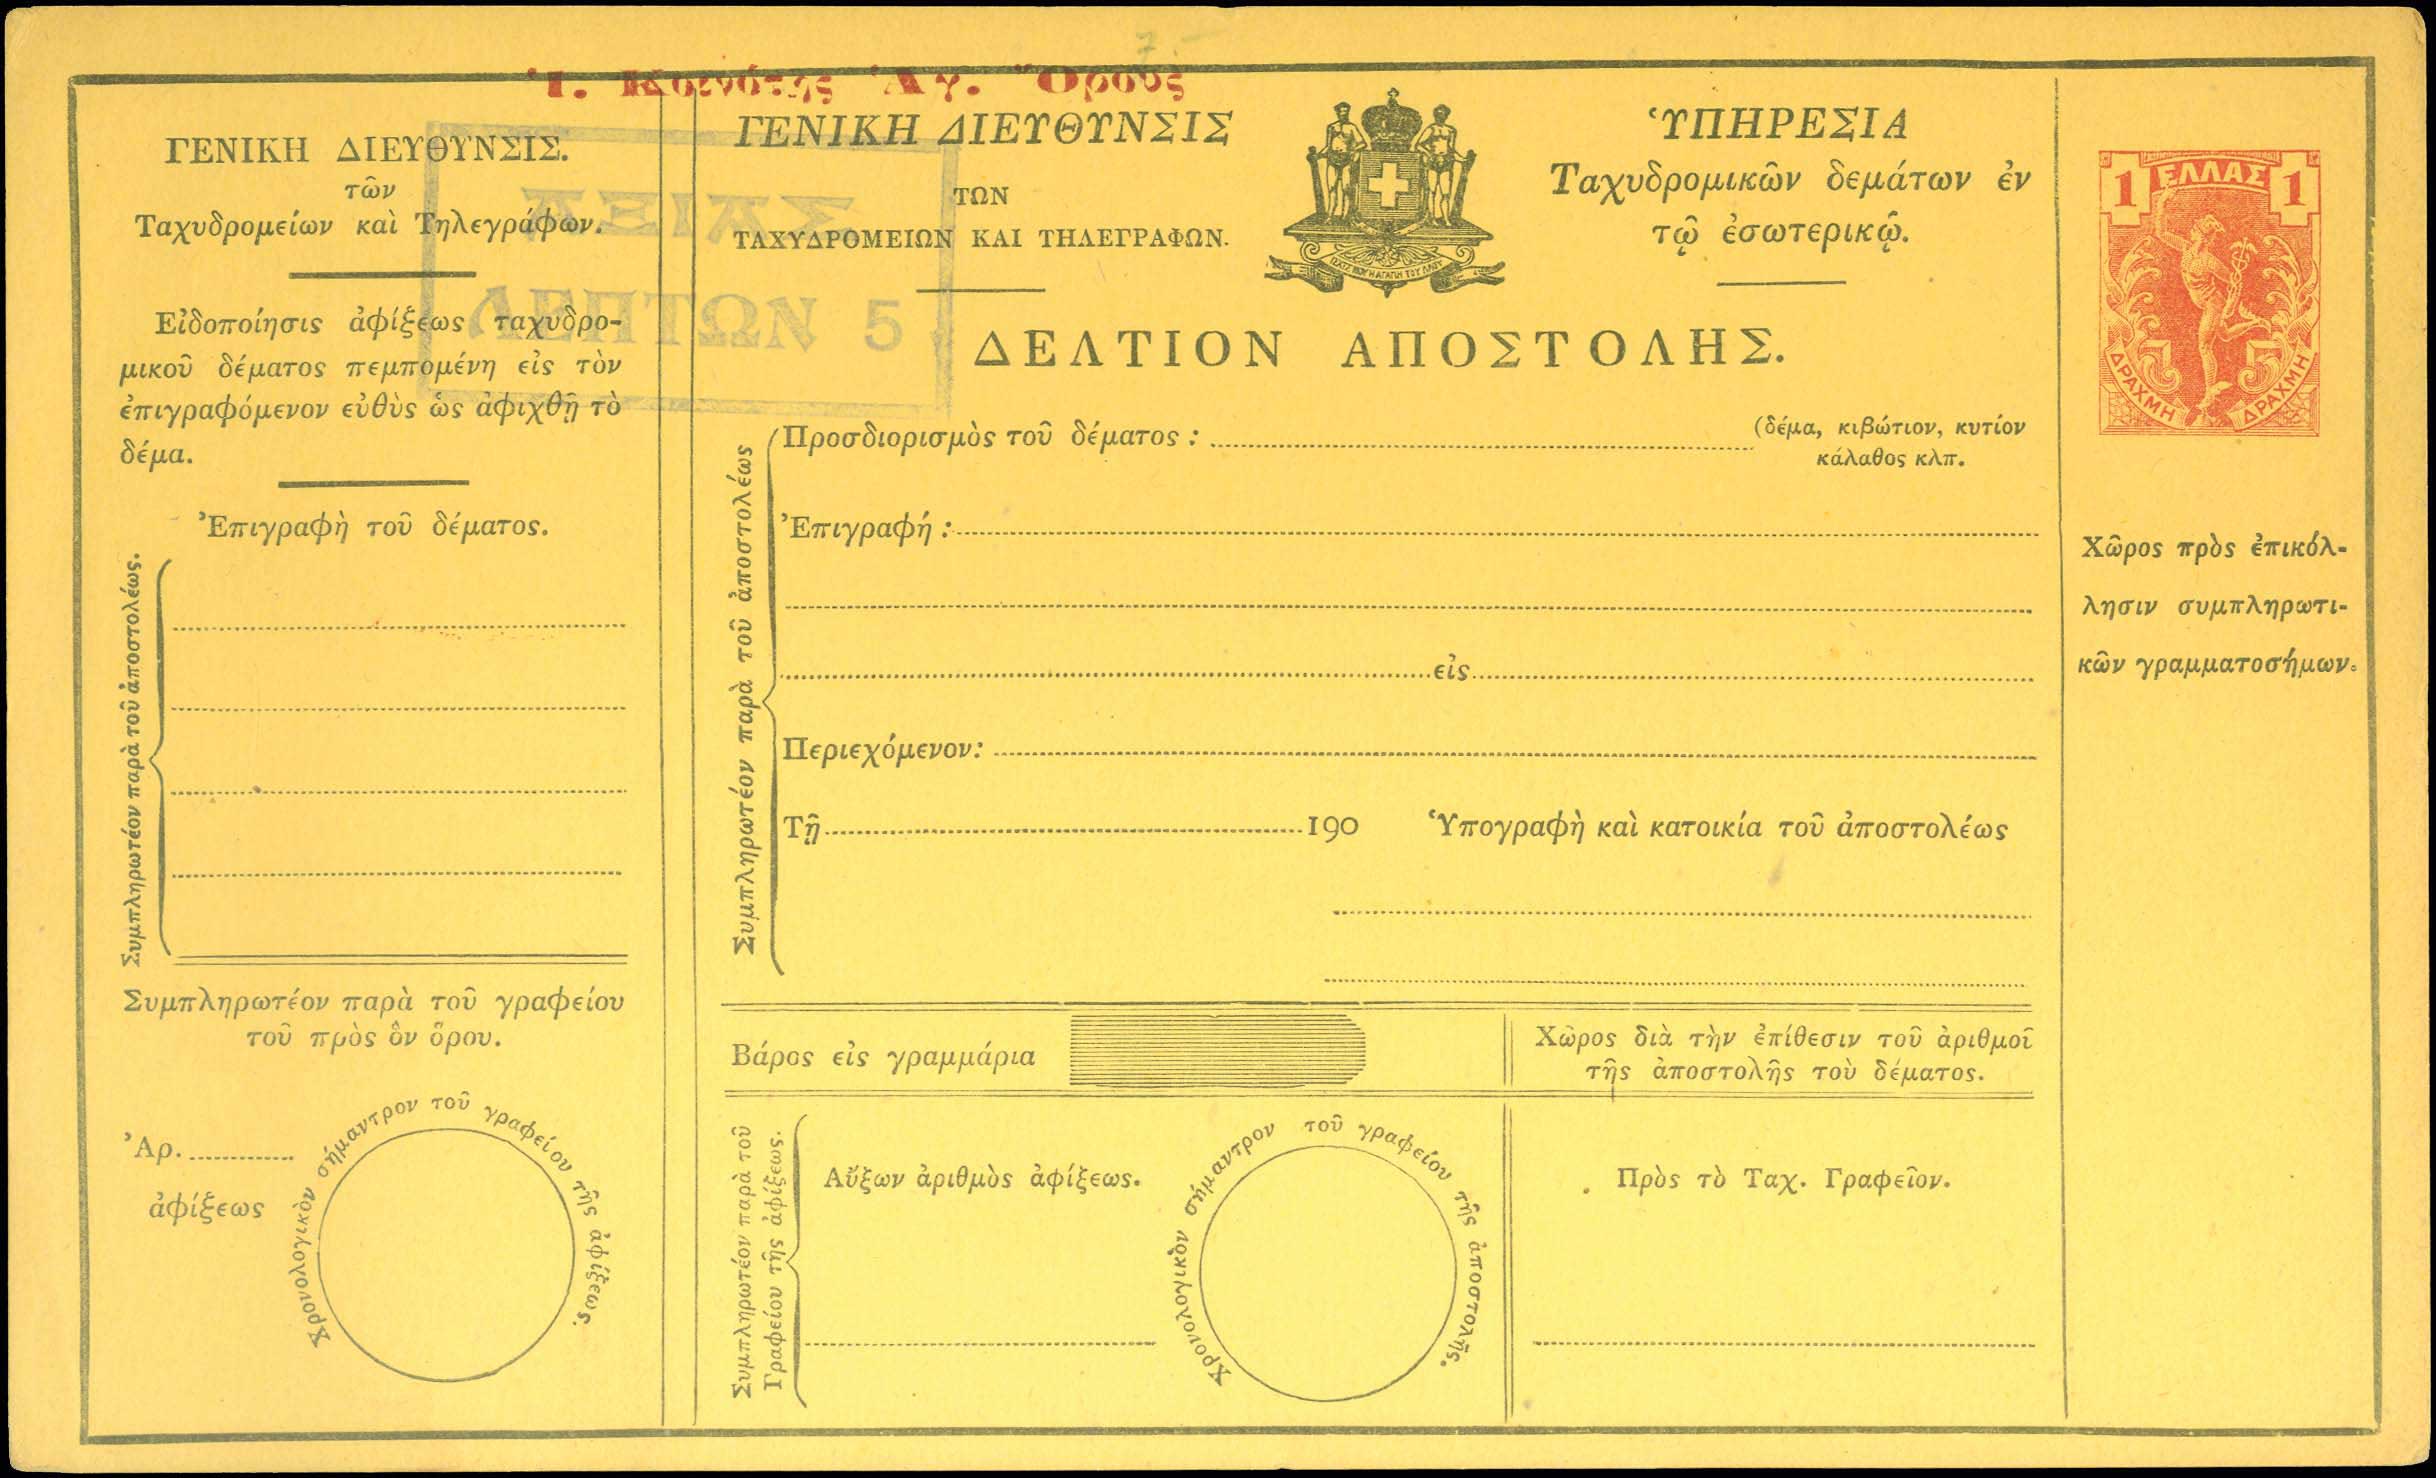 Ἱ. Κοινότης Ἁγ. Ὄρους
ΓΕΝΙΚΗ ΔΙΕΥΘΥΝΣΙΣ.
τῶν
Ταχυδρομείων καὶ Τηλεγράφων.
Εἰδοποίησις ἀφίξεως ταχυδρο-
μικοῦ δέματος πεμπομένη εἰς τὸν
ἐπιγραφόμενον εὐθὺς ὡς ἀφιχθῇ τὸ
δέμα.
Ἐπιγραφὴ τοῦ δέματος.
Συμπληρωτέον παρὰ τοῦ ἀποστολέως.
Συμπληρωτέον παρὰ τοῦ γραφείου
τοῦ πρὸς ὃν ὅρου.
Ἀρ.
ἀφίξεως
Χρονολογικὸν σήμαντρον τοῦ γραφείου τῆς ἀφίξεως.
ΑΞΙΑΣ
ΛΕΠΤΩΝ 5
ΓΕΝΙΚΗ ΔΙΕΥΘΥΝΣΙΣ
ΤΩΝ
ΤΑΧΥΔΡΟΜΕΙΩΝ ΚΑΙ ΤΗΛΕΓΡΑΦΩΝ.
ὙΠΗΡΕΣΙΑ
Ταχυδρομικῶν δεμάτων ἐν
τῷ ἐσωτερικῷ.
ΔΕΛΤΙΟΝ ΑΠΟΣΤΟΛΗΣ.
Συμπληρωτέον παρὰ τοῦ ἀποστολέως
Προσδιορισμὸς τοῦ δέματος : (δέμα, κιβώτιον, κυτίον
κάλαθος κλπ.
Ἐπιγραφή :
εἰς
Περιεχόμενον:
Τῇ 190 Ὑπογραφὴ καὶ κατοικία τοῦ ἀποστολέως
Βάρος εἰς γραμμάρια
Χῶρος διὰ τὴν ἐπίθεσιν τοῦ ἀριθμοῦ
τῆς ἀποστολῆς τοῦ δέματος.
Συμπληρωτέον παρὰ τοῦ
Γραφείου τῆς ἀφίξεως.
Αὔξων ἀριθμὸς ἀφίξεως.
Χρονολογικὸν σήμαντρον τοῦ γραφείου τῆς ἀποστολῆς.
Πρὸς τὸ Ταχ. Γραφεῖον.
1 ΕΛΛΑΣ 1
ΔΡΑΧΜΗ ΔΡΑΧΜΗ
Χῶρος πρὸς ἐπικόλ-
λησιν συμπληρωτι-
κῶν γραμματοσήμων.